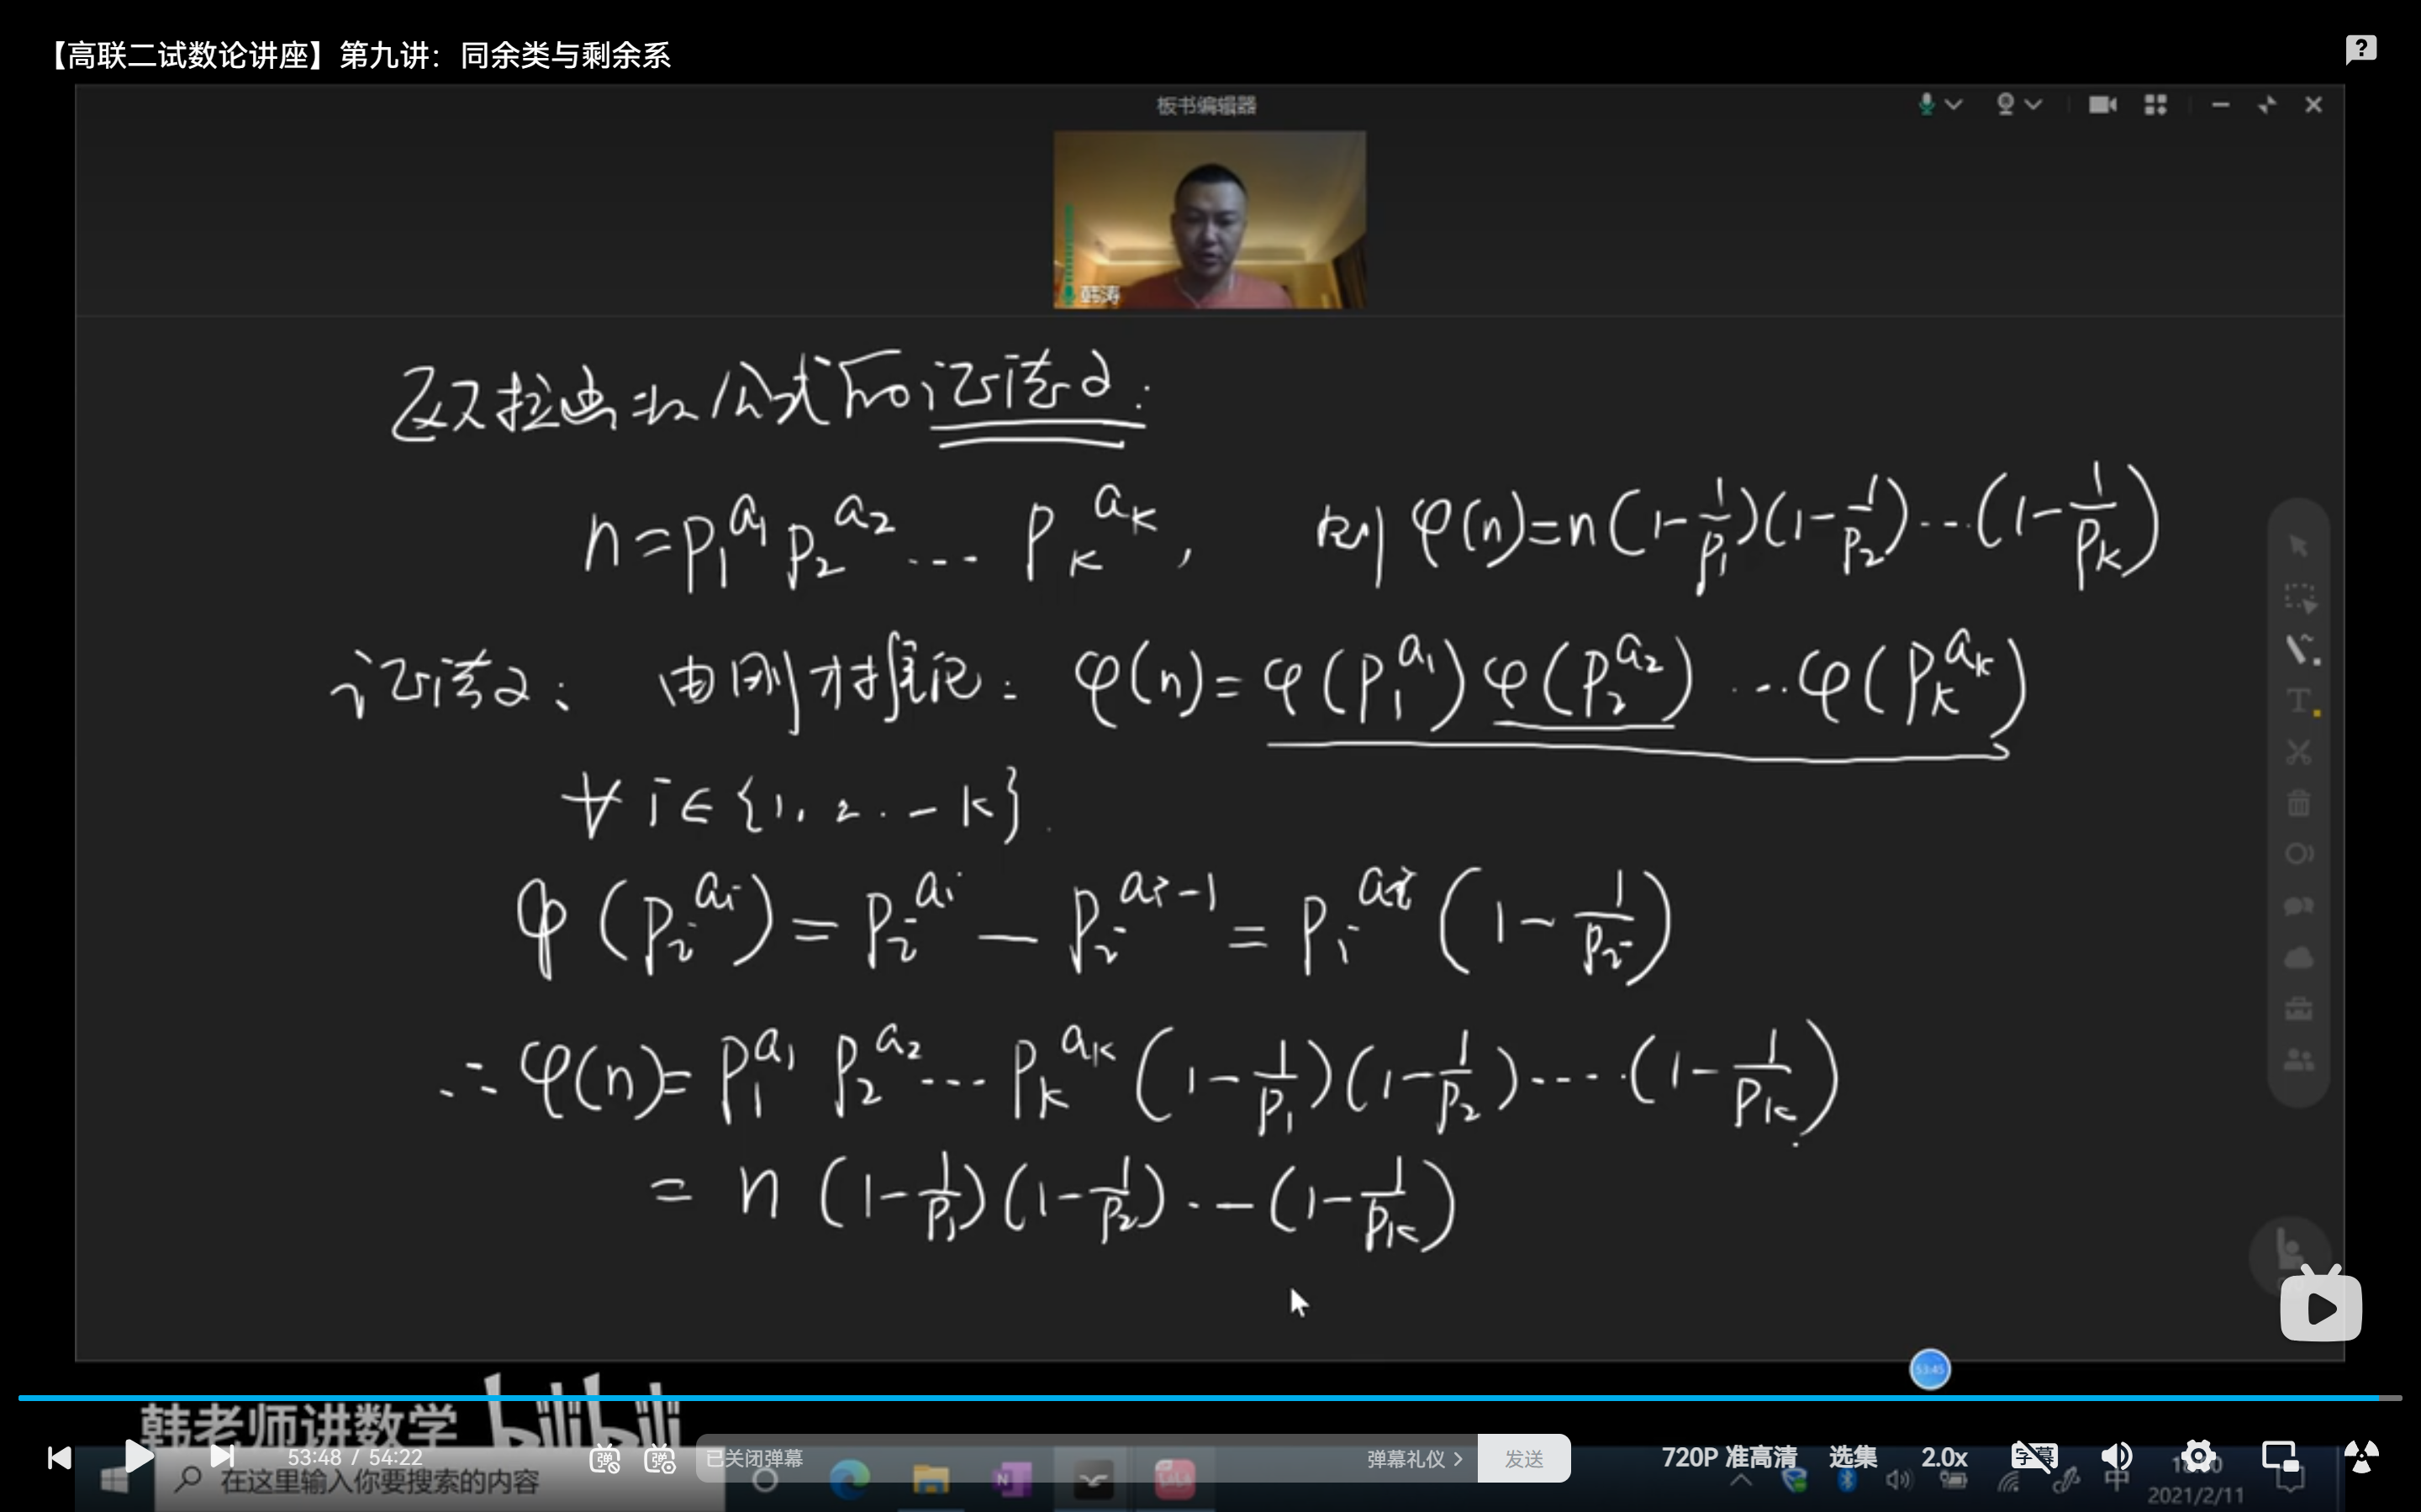 【高联二试数论讲座】第九讲：同余类与剩余系
板书编辑器
韩涛
欧拉函数公式的证法2:
n=p₁^{a₁} p₂^{a₂} ... p_k^{a_k}, 则 φ(n)=n(1-1/p₁)(1-1/p₂)...(1-1/p_k)
证法2: 由刚才推论: φ(n)=φ(p₁^{a₁})φ(p₂^{a₂})...φ(p_k^{a_k})
∀ i∈{1, 2...k}.
φ(p_i^{a_i})=p_i^{a_i}-p_i^{a_i-1}=p_i^{a_i}(1-1/p_i)
∴ φ(n)=p₁^{a₁} p₂^{a₂}...p_k^{a_k}(1-1/p₁)(1-1/p₂)....(1-1/p_k)
=n(1-1/p₁)(1-1/p₂)...(1-1/p_k)
53:45
韩老师讲数学 bilibili
53:48 / 54:22
弹 弹 已关闭弹幕 弹幕礼仪 发送
720P 准高清 选集 2.0x 字幕
在这里输入你要搜索的内容
中
2021/2/11